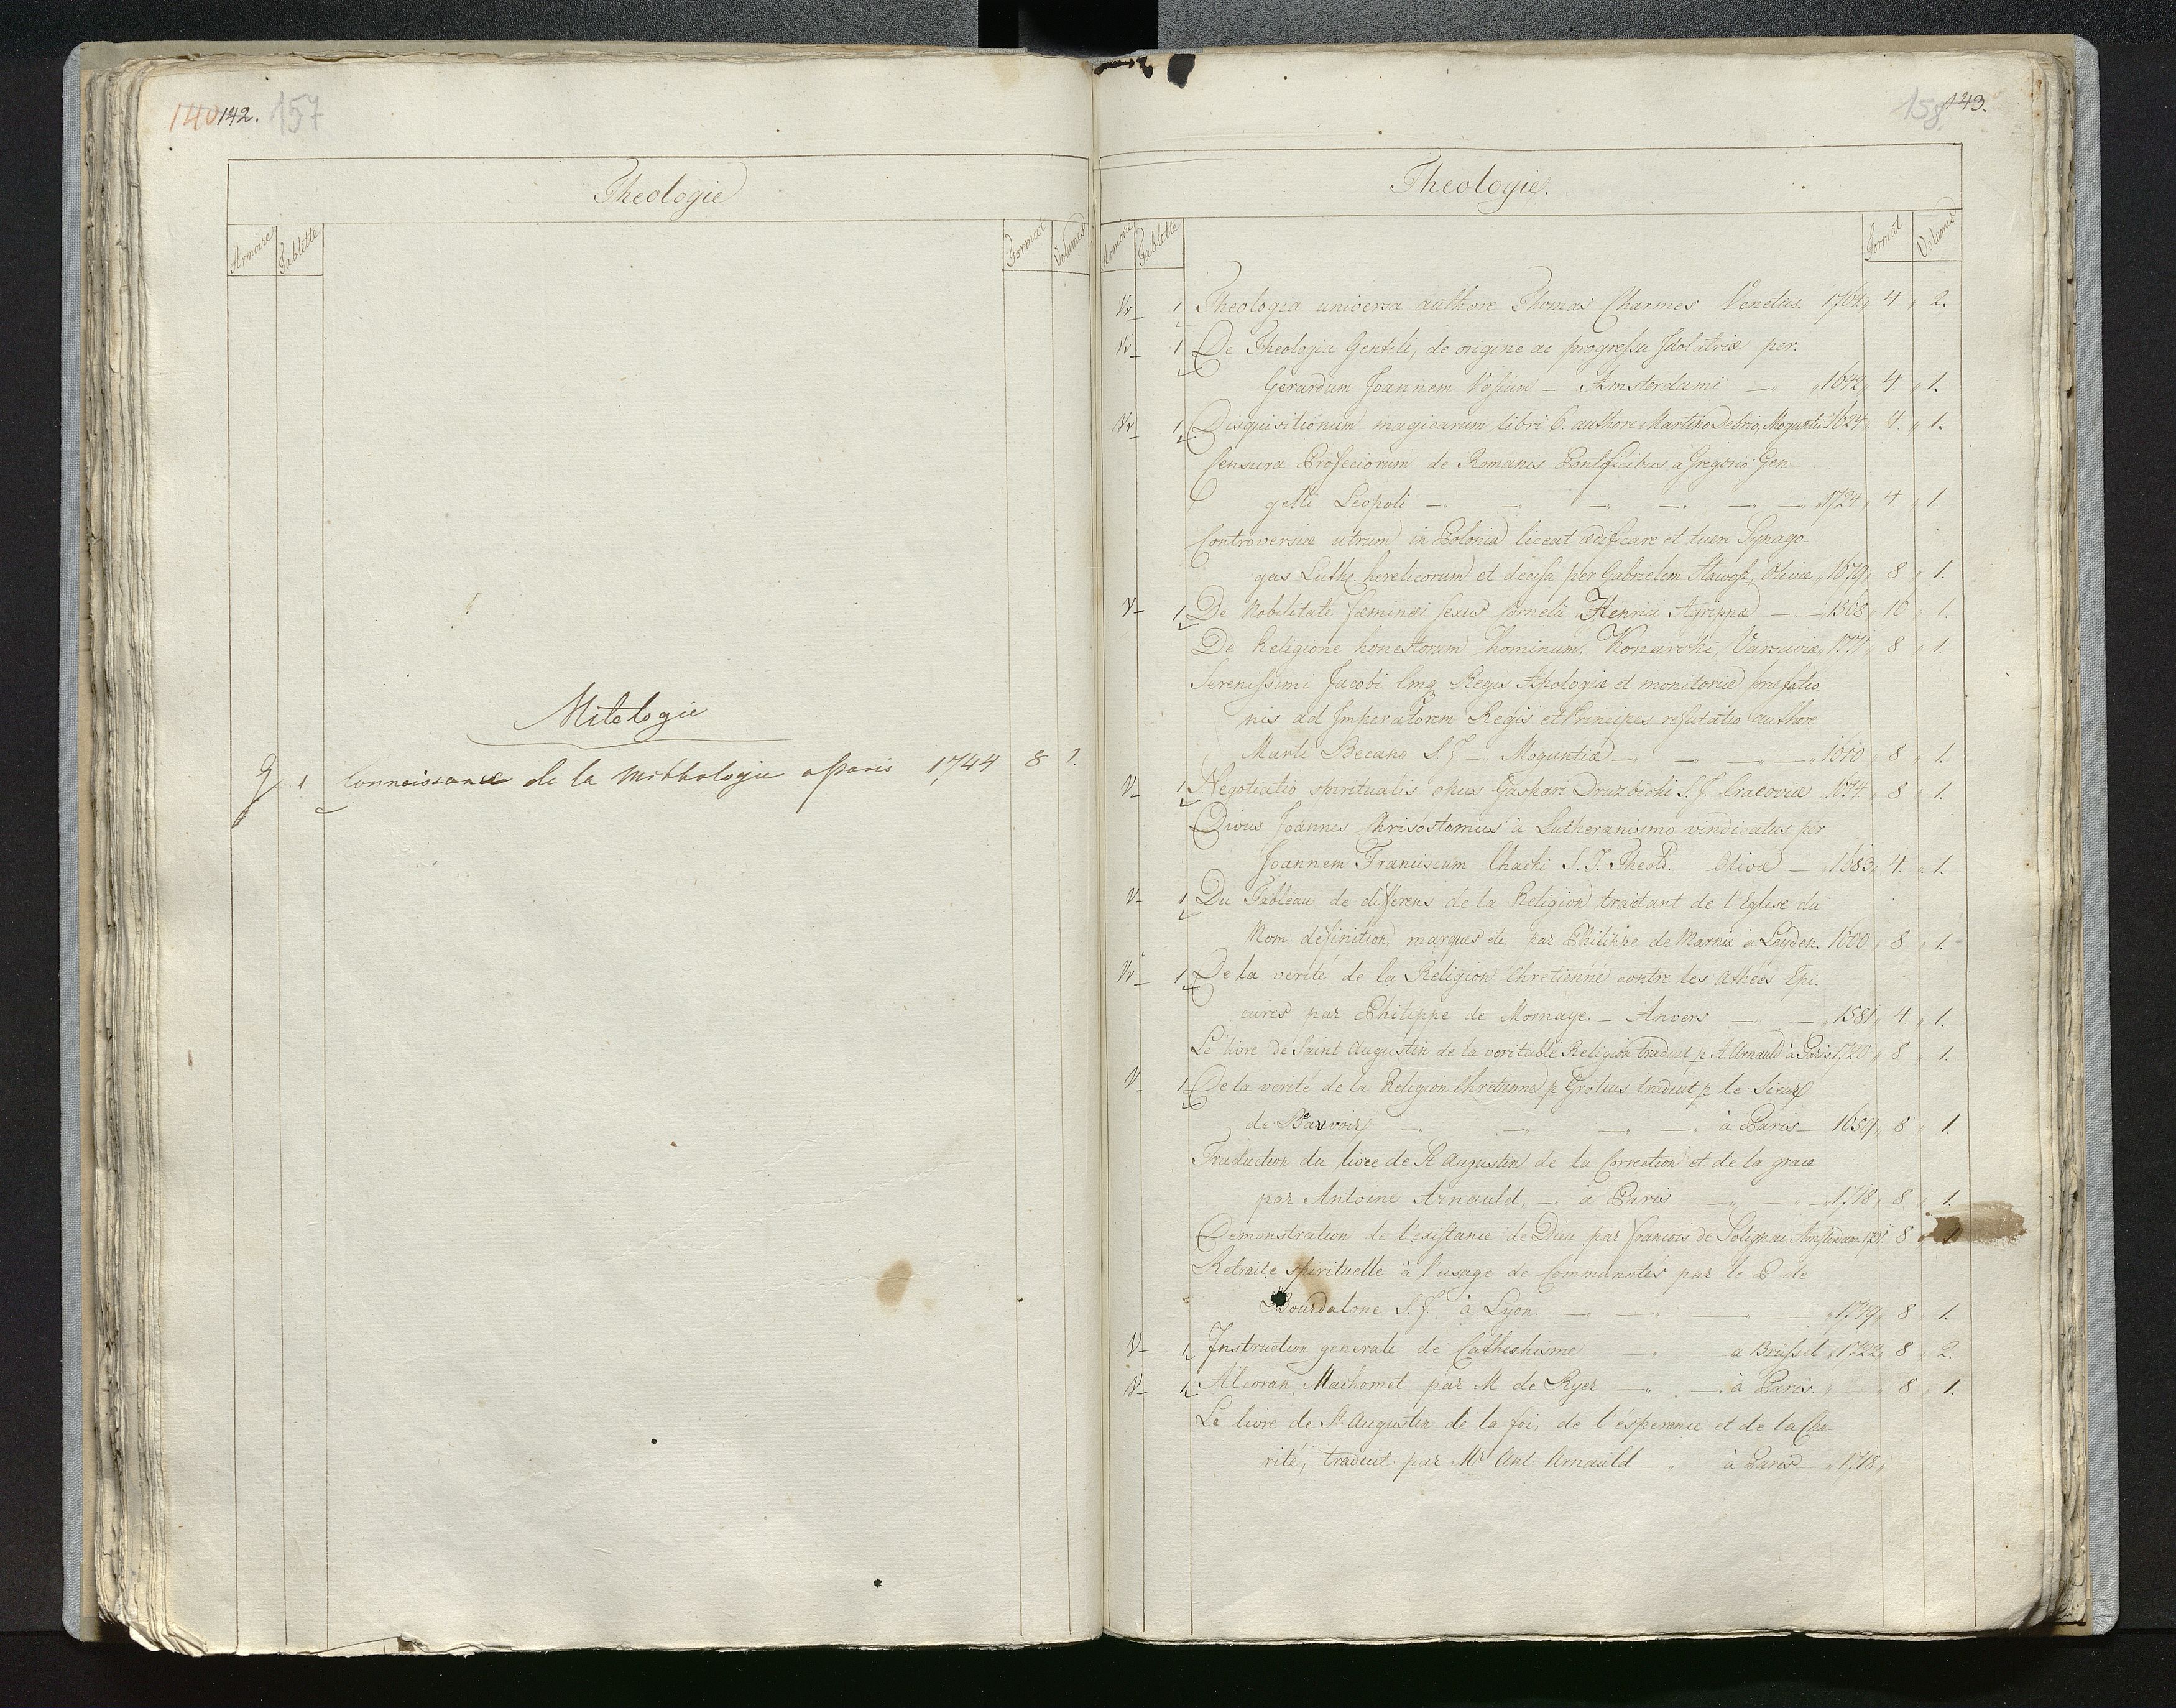 140 142. 157
Theologie
Armoire Tablette Format Volumes
Mitologie
9 1 Connaissance de la Mithologie a Paris 1744 8 1.
158 143.
Theologie.
Armoire Tablette Format Volumes
Vv 1 Theologia universa authore Thomas Charmes Venetiis. 1764 4 2.
Vv 1 De Theologia Gentili, de origine ac progressu Idolatriæ per.
Gerardum Joannem Vossium – Amsterdami – 1642 4. 1.
Vv 1 Disquisitionum magicarum libri 6. authore Martino Debrio, Moguntiæ 1624 4. 1.
Censura Profeciorum de Romanis Pontificibus a Gregorio Gen-
getti Leopoli – 1724 4 1.
Controversiæ utrum in Polonia liceat ædificare et tueri Synago-
gas Luthe. hereticorum et decisa per Gabrielem Olivæ 1679 8 1.
V 1 De Nobilitate fæminæi sexus Cornelii Henrici Agrippæ – 1568 16 1.
De Religione honestorum hominum, Konarski, Varsaviæ 1771 8 1.
Serenissimi Jacobi Regis Apologiæ et monitoriæ præfatio
nis ad Imperatorem Regis et Principes refutatio authore
Marti Becano S. J. – Moguntiæ – 1610 8 1.
V 1 Negotiatio spiritualis opus Gaspari Druzbicki S. J. Cracoviæ 1674. 8 1.
Divus Joannes Chrisostomus a Lutheranismo vindicatus per
Joannem Franciscum Chacki S. J. Theol. Olivæ – 1683 4. 1.
V 1 Du Tableau de differens de la Religion traitant de l'Eglise du
Nom definition, marques etc. par Philippe de Marnix a Leyden. 1600 8 1.
Vv 1 De la verité de la Religion Chretienne contre les athées Epi-
cures par Philippe de Mornaye – Anvers – 1581 4. 1.
Le livre de Saint Augustin de la veritable Religion traduit p. A Arnauld à Paris 1720 8 1.
V 1 De la verité de la Religion Chretienne p Grotius traduit p. le Sieur
de Bauvoir – à Paris – 1659 8 1.
Traduction du livre de St Augustin de la Correction et de la grace
par Antoine Arnauld, – à Paris – 1718 8 1.
Demonstration de l'existance de Dieu par Francois de Solignac Amsterdam 8 1.
Retraite spirituelle à l'usage de Communotés par le P de
Bourdalone S. J. à Lyon. – 1749 8 1.
V 1 Instruction generale de Cathechisme – a Brussel 1722 8 2.
V 1 Alcoran Machomet par M de Ryer – à Paris. 8 1.
Le livre de St Augustin de la foi, de l'ésperance et de la Cha-
rité, traduit par Mr Ant. Arnauld – à Paris – 1718